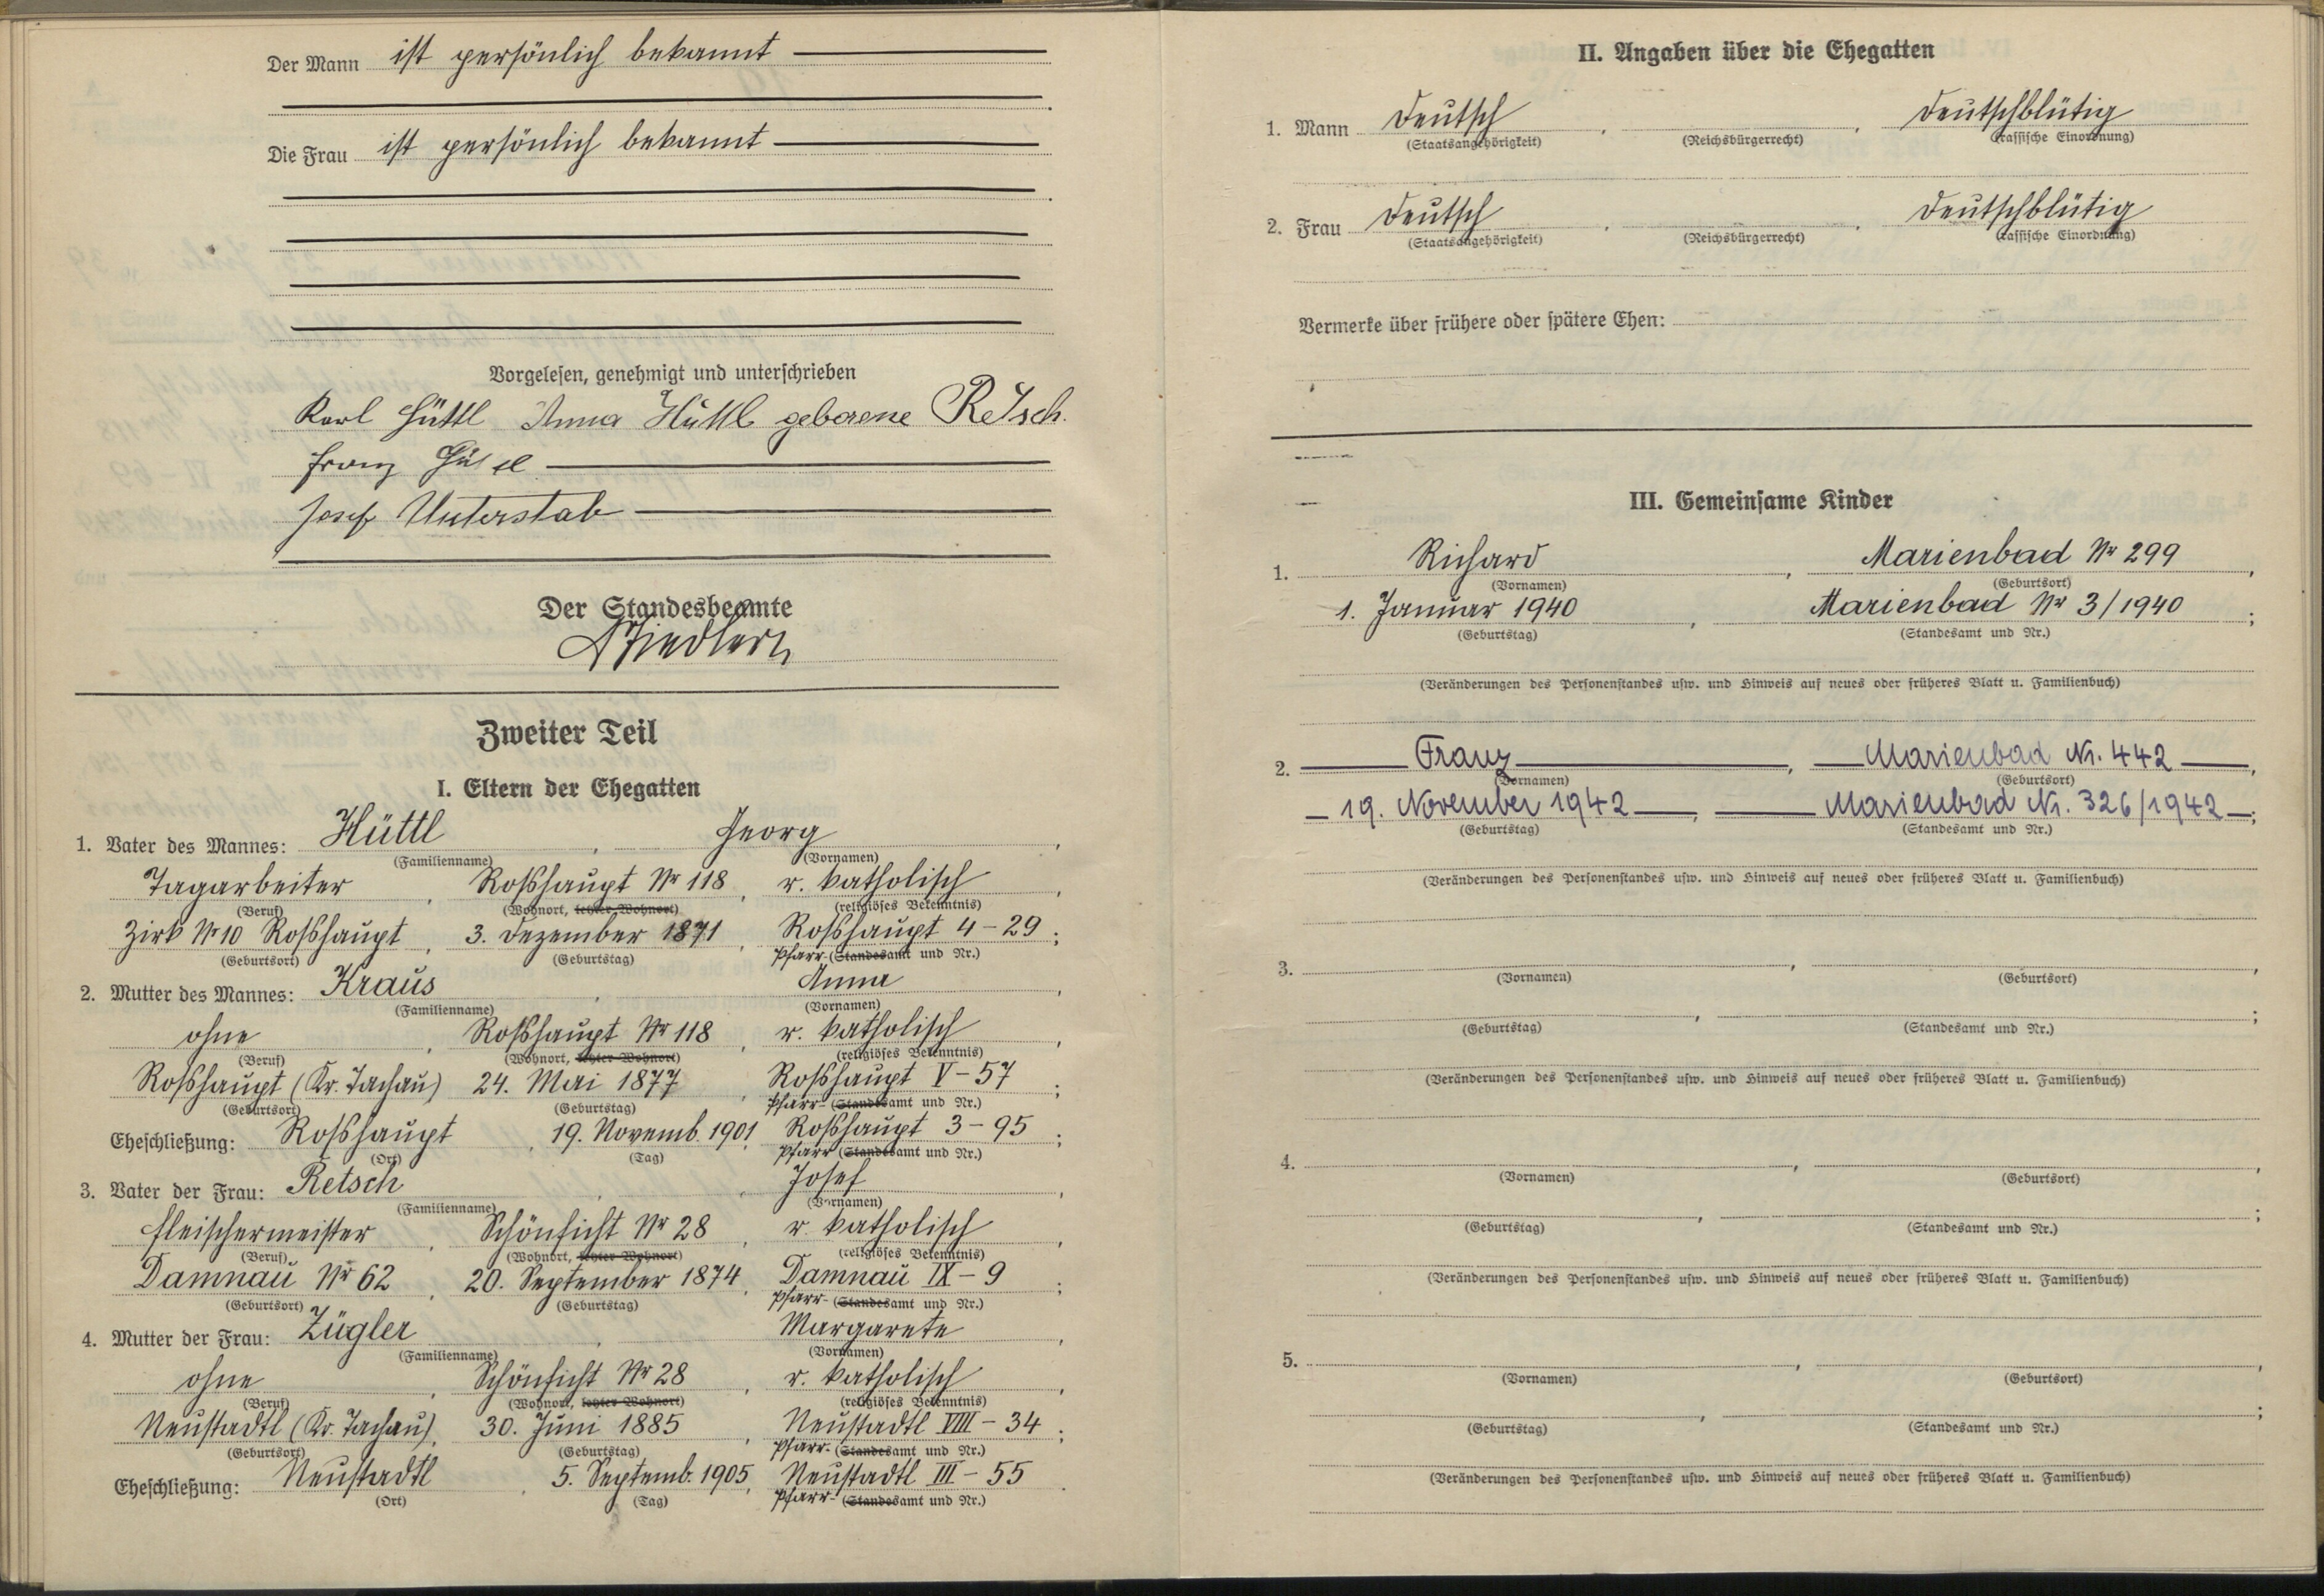 Der Mann ist persönlich bekannt
Die Frau ist persönlich bekannt
Vorgelesen, genehmigt und unterschrieben
Karl Hüttl Anna Hüttl geborene Retsch.
Franz
Josef Unterstab
Der Standesbeamte
Zweiter Teil
I. Eltern der Ehegatten
1. Vater des Mannes: Hüttl, Georg,
(Familienname) (Vornamen)
Tagarbeiter, Roßhaupt Nr 118, r. katholisch,
(Beruf) (Wohnort, letzter Wohnort) (religiöses Bekenntnis)
Zirk Nr 10 Roßhaupt, 3. Dezember 1871, Roßhaupt 4-29;
(Geburtsort) (Geburtstag) Pfarr-(Standesamt und Nr.)
2. Mutter des Mannes: Kraus, Anna,
(Familienname) (Vornamen)
ohne, Roßhaupt Nr 118, r. katholisch,
(Beruf) (Wohnort, letzter Wohnort) (religiöses Bekenntnis)
Roßhaupt (Kr. Tachau) 24. Mai 1877, Roßhaupt V-57;
(Geburtsort) (Geburtstag) Pfarr-(Standesamt und Nr.)
Eheschließung: Roßhaupt, 19. Novemb. 1901, Roßhaupt 3-95;
(Ort) (Tag) Pfarr (Standesamt und Nr.)
3. Vater der Frau: Retsch, Josef,
(Familienname) (Vornamen)
Fleischermeister, Schönficht Nr 28, r. katholisch,
(Beruf) (Wohnort, letzter Wohnort) (religiöses Bekenntnis)
Damnau Nr 62, 20. September 1874, Damnau IX-9;
(Geburtsort) (Geburtstag) Pfarr-(Standesamt und Nr.)
4. Mutter der Frau: Zügler, Margarete,
(Familienname) (Vornamen)
ohne, Schönficht Nr 28, r. katholisch,
(Beruf) (Wohnort, letzter Wohnort) (religiöses Bekenntnis)
Neustadtl (Kr. Tachau), 30. Juni 1885, Neustadtl VIII-34;
(Geburtsort) (Geburtstag) Pfarr-(Standesamt und Nr.)
Eheschließung: Neustadtl, 5. Septemb. 1905, Neustadtl III-55.
(Ort) (Tag) Pfarr-(Standesamt und Nr.)
II. Angaben über die Ehegatten
1. Mann Deutsch, , Deutschblütig
(Staatsangehörigkeit) (Reichsbürgerrecht) (rassische Einordnung)
2. Frau Deutsch, , Deutschblütig
(Staatsangehörigkeit) (Reichsbürgerrecht) (rassische Einordnung)
Vermerke über frühere oder spätere Ehen:
III. Gemeinsame Kinder
1. Richard, Marienbad Nr 299,
(Vornamen) (Geburtsort)
1. Januar 1940, Marienbad Nr 3/1940;
(Geburtstag) (Standesamt und Nr.)
(Veränderungen des Personenstandes usw. und Hinweis auf neues oder früheres Blatt u. Familienbuch)
2. Franz, Marienbad Nr. 442,
(Vornamen) (Geburtsort)
19. November 1942, Marienbad Nr. 326/1942;
(Geburtstag) (Standesamt und Nr.)
(Veränderungen des Personenstandes usw. und Hinweis auf neues oder früheres Blatt u. Familienbuch)
3. , ,
(Vornamen) (Geburtsort)
, ;
(Geburtstag) (Standesamt und Nr.)
(Veränderungen des Personenstandes usw. und Hinweis auf neues oder früheres Blatt u. Familienbuch)
4. , ,
(Vornamen) (Geburtsort)
, ;
(Geburtstag) (Standesamt und Nr.)
(Veränderungen des Personenstandes usw. und Hinweis auf neues oder früheres Blatt u. Familienbuch)
5. , ,
(Vornamen) (Geburtsort)
, ;
(Geburtstag) (Standesamt und Nr.)
(Veränderungen des Personenstandes usw. und Hinweis auf neues oder früheres Blatt u. Familienbuch)